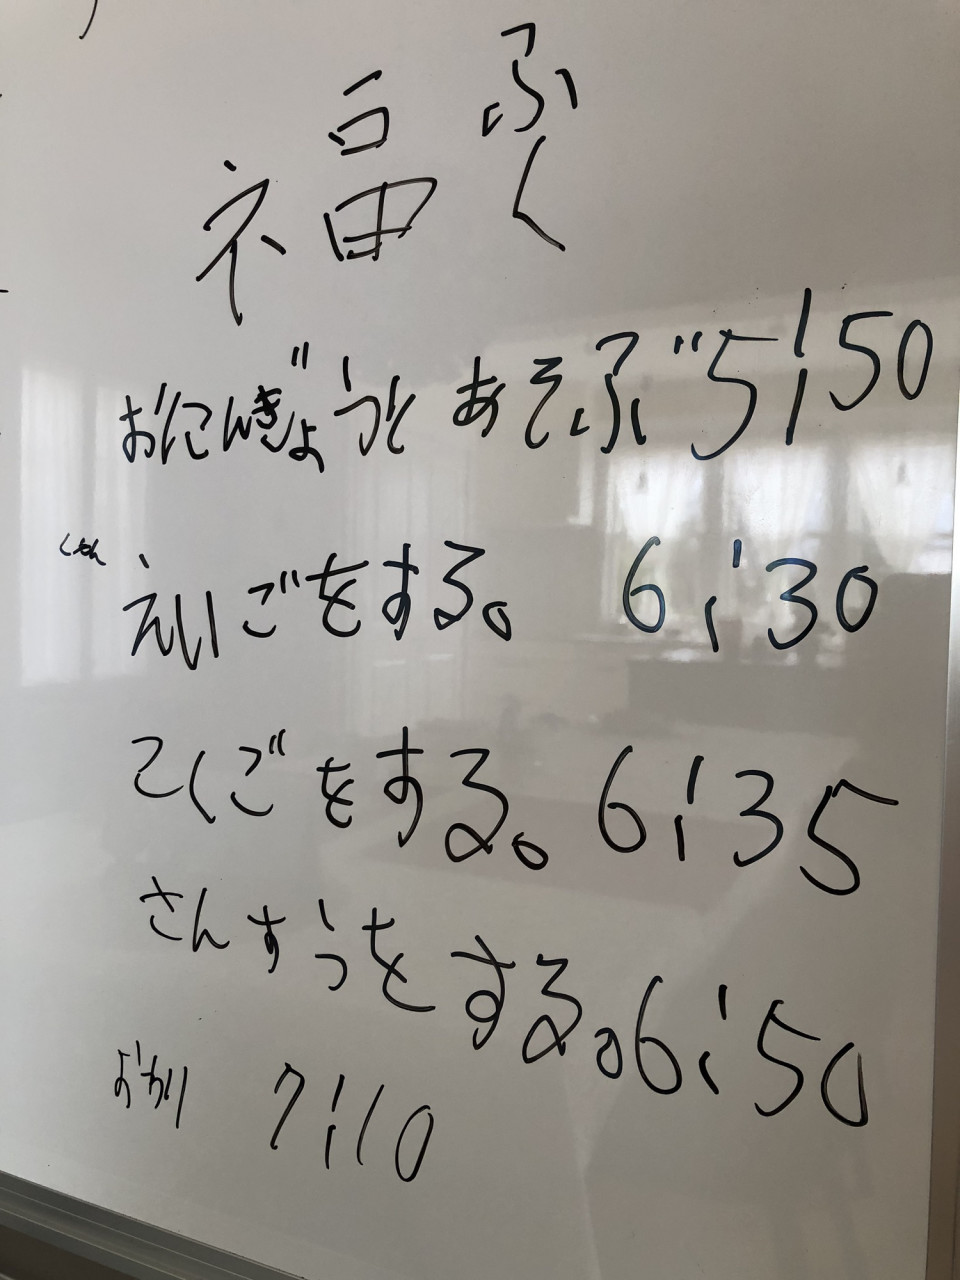 福 ふく
おにんぎょうとあそぶ 5:50
くもん
えいごをする。 6:30
こくごをする。 6:35
さんすうをする。 6:50
おわり 7:10